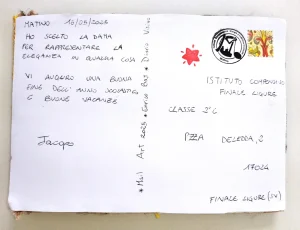 MATINO 16/05/2023
HO SCELTO LA DATA
PER RAPPRESENTARE LA
ELEGANZA IN QUALCHE COSA
VI AUGURO UNA BUONA
FINE DELL'ANNO SCOLASTICO
E BUONE VACANZE
Jacopo
* Mail Art 2023 *
ISTITUTO COMPRENSIVO
FINALE LIGURE
CLASSE 2°C
P.ZZA DELEDDA, 2
17024
FINALE LIGURE (SV)